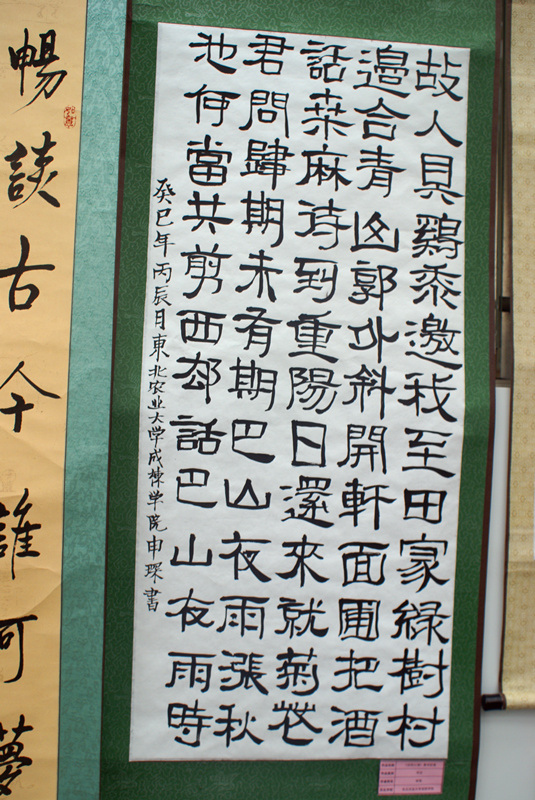 故人具鷄黍邀我至田家綠樹村
邊合青山郭外斜開軒面圃把酒
話桒麻待到重陽日還來就菊花
君問歸期未有期巴山夜雨漲秋
池何當共剪西却話巴山夜雨時
癸巳年丙辰月東北农业大学成栋学院申琛書
暢談古今誰可夢